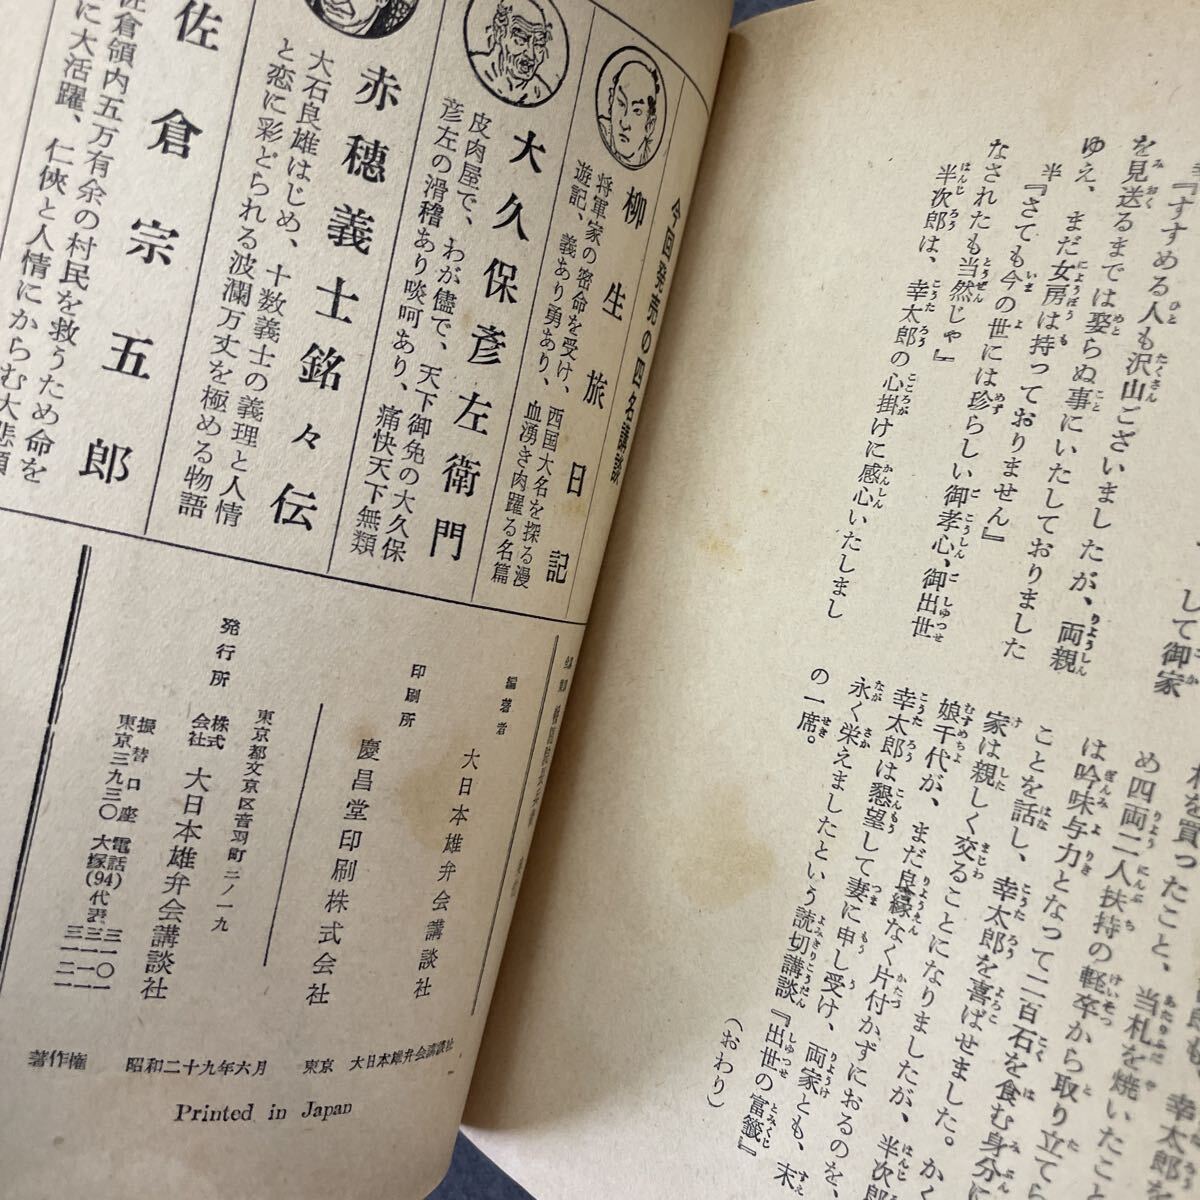 して御家
幸『すすめる人も沢山ございましたが、両親
を見送るまでは娶らぬ事にいたしておりました
ゆえ、まだ女房は持っておりません』
半『さても今の世には珍らしい御孝心、御出世
なされたも当然じゃ』
半次郎は、幸太郎の心掛けに感心いたしまし
幸太郎
札を買ったこと、当札を焼いたこと
め四両二人扶持の軽卒から取り立て
は吟味与力となって二百石を食む身分に
ことを話し、幸太郎を喜ばせました。かく
家は親しく交ることになりましたが、半次郎
娘千代が、まだ良縁なく片付かずにおるのを、
幸太郎は懇望して妻に申し受け、両家とも、末
永く栄えましたという読切講談『出世の富籤』
の一席。
（おわり）
今回発売の四名講談
柳生旅日記
将軍家の密命を受け、西国大名を探る漫
遊記、義あり勇あり、血湧き肉躍る名篇
大久保彦左衛門
皮肉屋で、わが儘で、天下御免の大久保
彦左の滑稽あり啖呵あり、痛快天下無類
赤穂義士銘々伝
大石良雄はじめ、十数義士の義理と人情
と恋に彩どられる波瀾万丈を極める物語
佐倉宗五郎
佐倉領内五万有余の村民を救うため命を
に大活躍、仁俠と人情にからむ大悲
編著者 大日本雄弁会講談社
印刷所 慶昌堂印刷株式会社
東京都文京区音羽町二ノ一九
発行所 株式会社 大日本雄弁会講談社
振替口座 東京三九三〇 電話 大塚(94)代表
著作権 昭和二十九年六月 東京 大日本雄弁会講談社
Printed in Japan